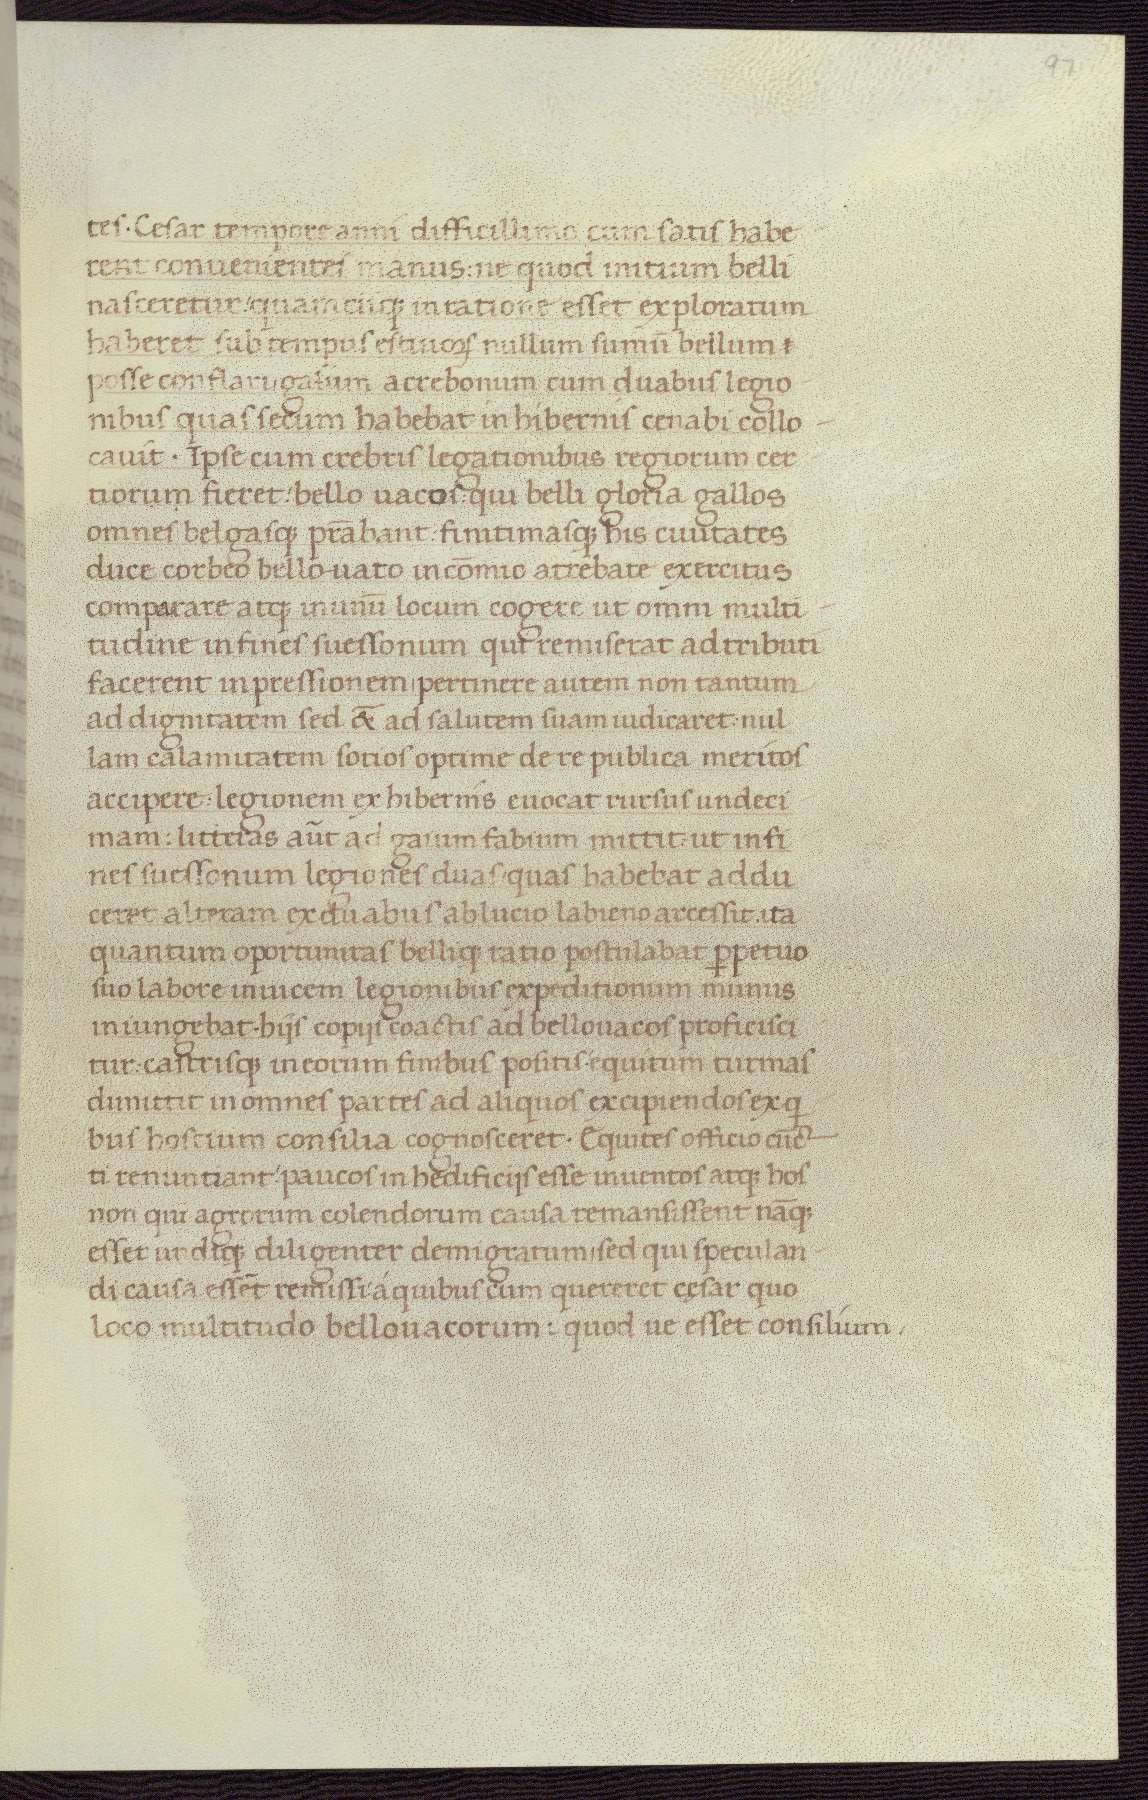 97
tes · Cesar tempore anni difficillimo cum satis habe
rent convenientes manus : ne quod initium belli
nasceretur : quam cũq; in ratione esset exploratum
haberet sub tempus estivoꝝ nullum sumũ bellum
posse conflari gaium acrebonum cum duabus legio
nibus quas secum habebat in hibernis cenabi collo
cavit · Ipse cum crebris legationibus regiorum cer
tiorum fieret : bello vacos : qui belli gloria gallos
omnes belgasq; prãbant : finitimasq; his civitates
duce corbeo bellovato in cõmio atrebate exercitus
comparare atq; in unũ locum cogere ut omni multi
tudine in fines suessonum qui remiserat ad tributi
facerent inpressionem / pertinere autem non tantum
ad dignitatem sed &̃ ad salutem suam iudicaret · nul
lam calamitatem sotios optime de re publica meritos
accipere : legionem ex hibernis evocat rursus undeci
mam : litteras aũt ad gaium fabium mittit · ut in fi
nes suessonum legiones duas / quas habebat addu
ceret alteram ex duabus ab lucio labieno arcessit · ita
quantum oportunitas belliq; ratio postulabat ꝑpetuo
suo labore invicem legionibus expeditionum munus
iniungebat · hijs copijs coactis ad bellovacos proficisci
tur : castrisq; in eorum finibus positis · equitum turmas
dimittit in omnes partes ad aliquos excipiendos ex q
bus hostium consilia cognosceret · Equites officio cũc
ti renuntiant : paucos in hedificijs esse inventos atq; hos
non qui agrorum colendorum causa remansissent nãq;
esset undiq; diligenter demigratum / sed qui speculan
di causa essẽt remissi / á quibus cum quereret cęsar quo
loco multitudo bellovacorum : quod ve esset consilium